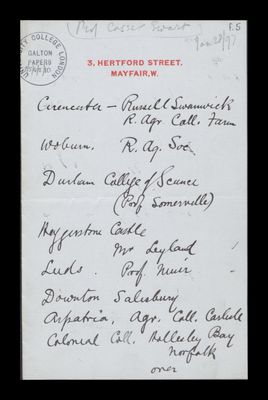 (Prof Cossar Ewart)
Jan 28/97
F.5
UNIVERSITY COLLEGE LONDON
GALTON
PAPERS
3, HERTFORD STREET,
MAYFAIR, W.
Cirencester — Russell Swanwick
R. Agr. Coll. Farm
Woburn. R. Ag. Soc
Durham College of Science
(Prof Somerville)
Haggerstone Castle
Mr Leyland
Leeds. Prof Muir
Downton Salisbury
Aspatria, Agr. Coll. Carlisle
Colonial Coll. Hollesley Bay
Norfolk
over